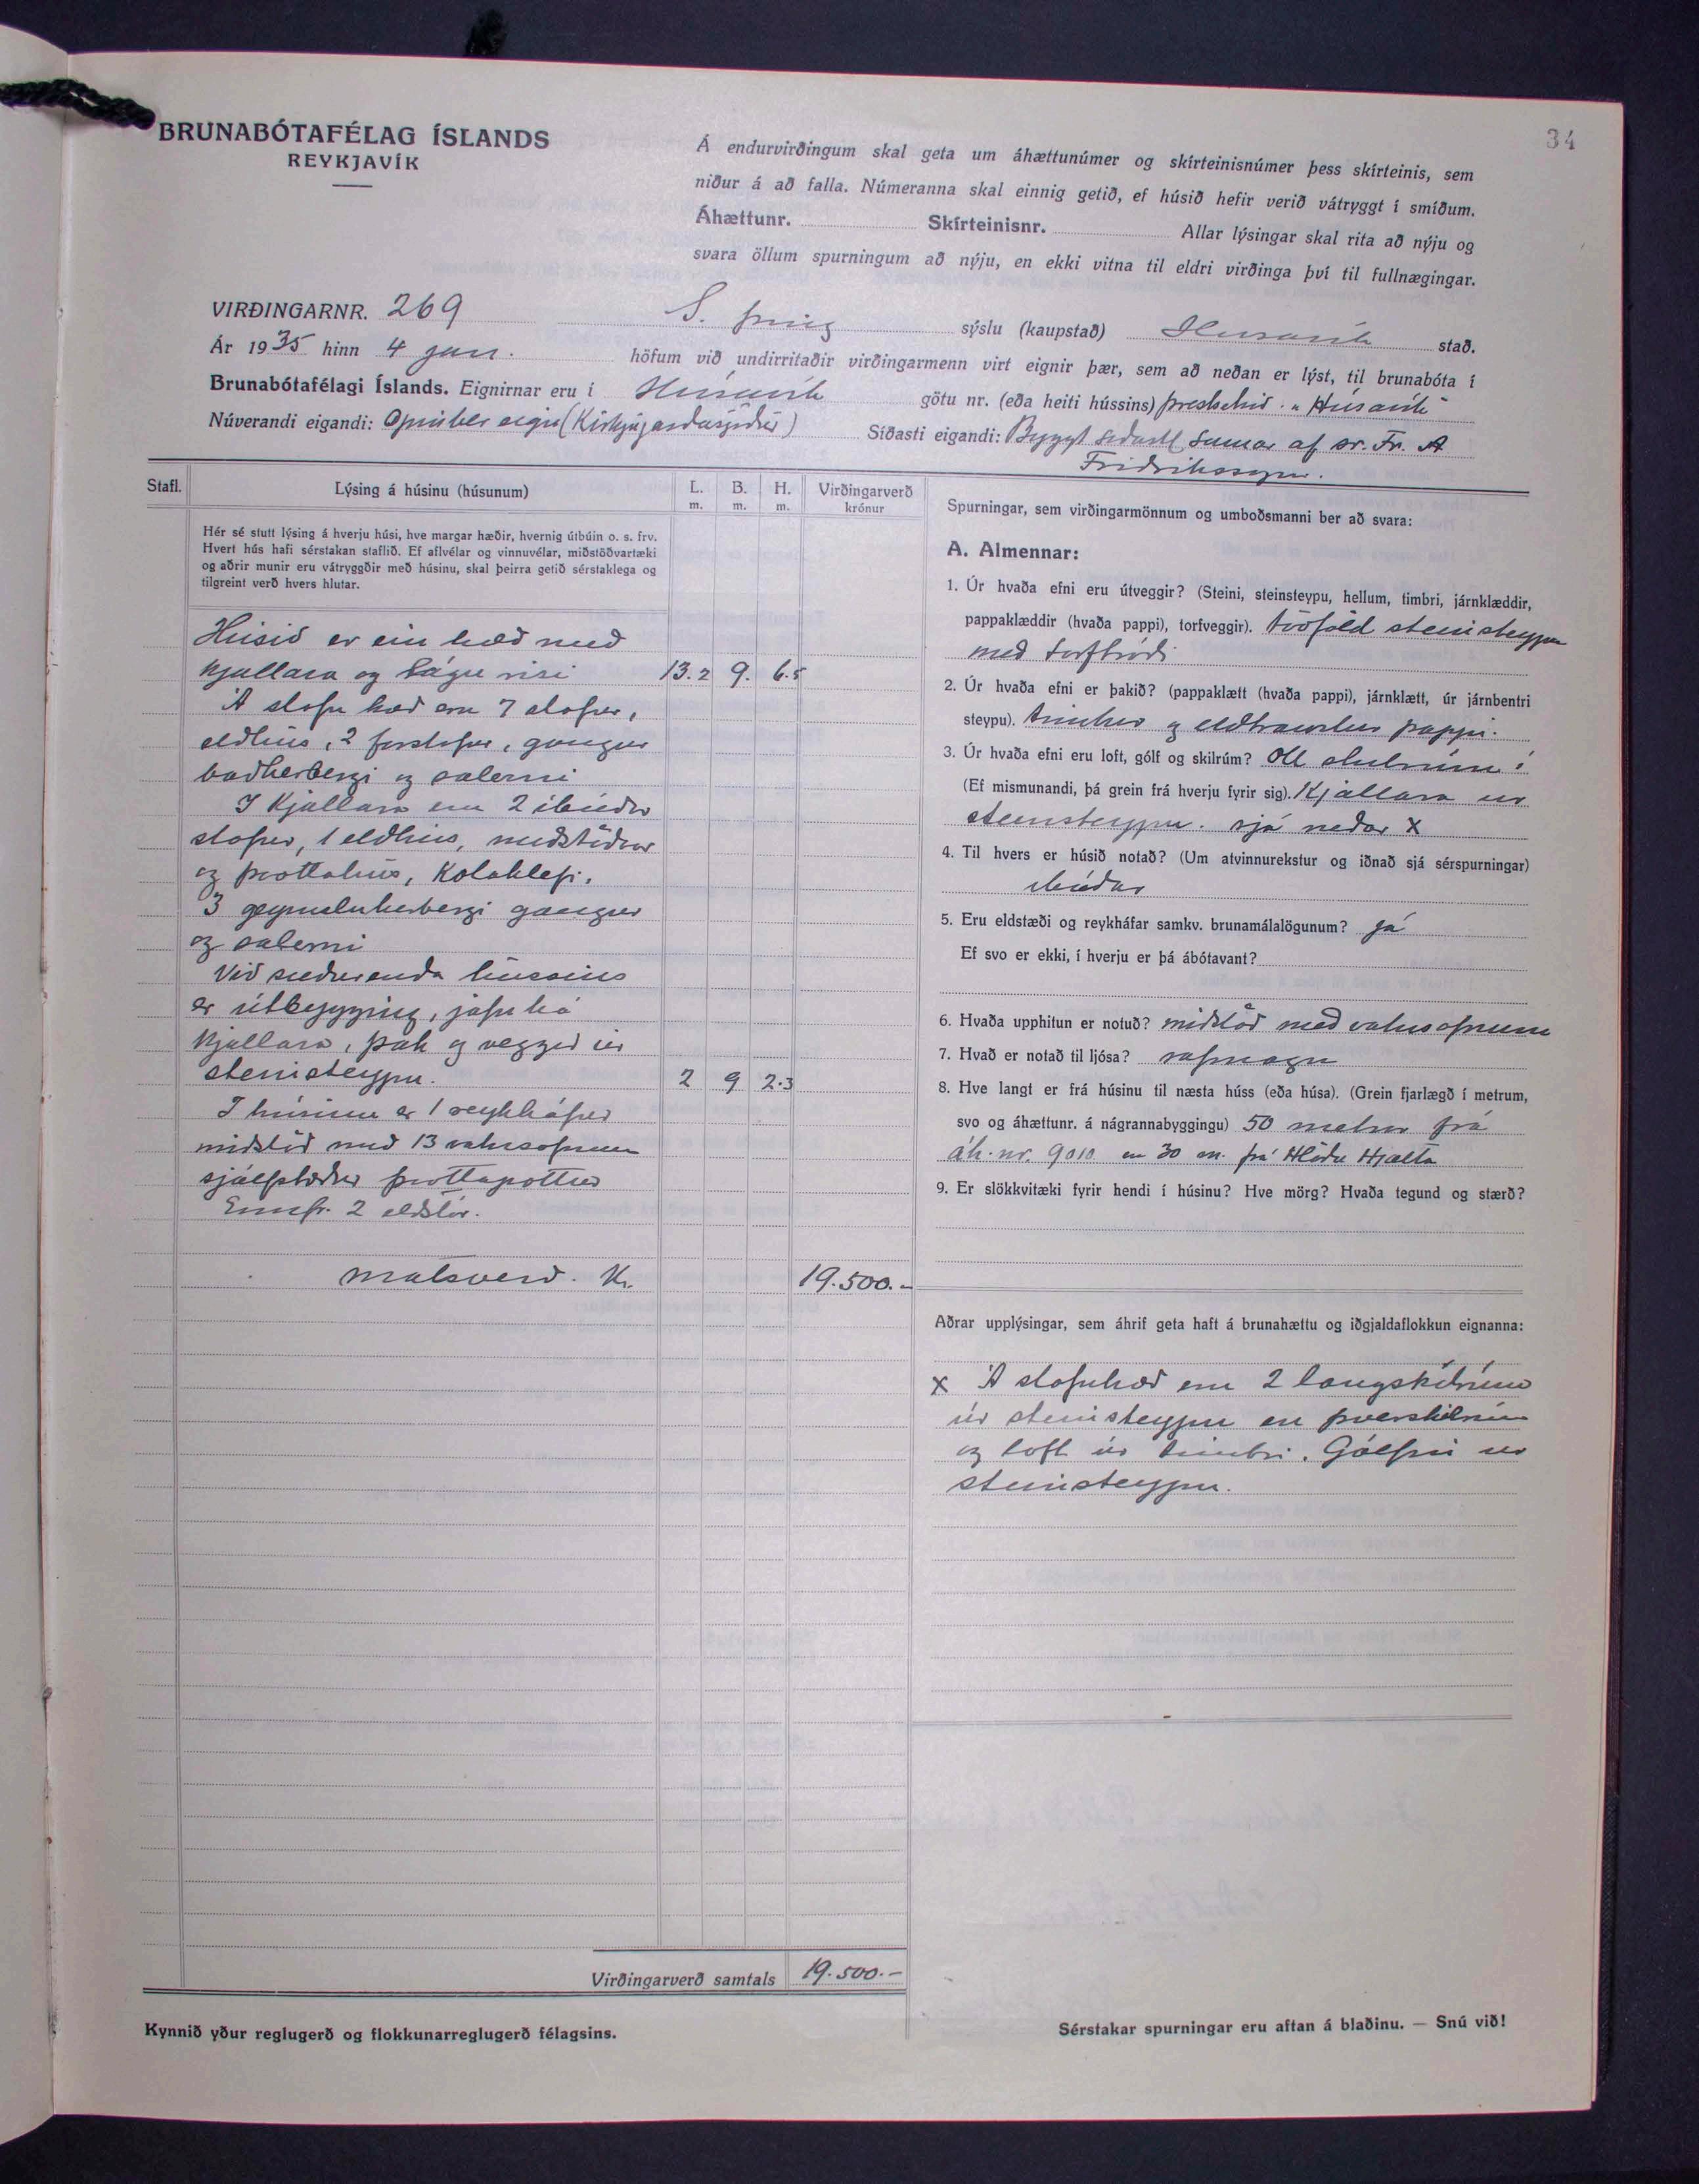 34
BRUNABÓTAFÉLAG ÍSLANDS
REYKJAVÍK
Á endurvirðingum skal geta um áhættunúmer og skírteinisnúmer þess skírteinis, sem
niður á að falla. Númeranna skal einnig getið, ef húsið hefir verið vátryggt í smíðum.
Áhættunr. Skírteinisnr. Allar lýsingar skal rita að nýju og
svara öllum spurningum að nýju, en ekki vitna til eldri virðinga því til fullnægingar.
VIRÐINGARNR. 269 S. þing sýslu (kaupstað) Húsavík stað.
Ár 1935 hinn 4 jan. höfum við undirritaðir virðingarmenn virt eignir þær, sem að neðan er lýst, til brunabóta í
Brunabótafélagi Íslands. Eignirnar eru í Húsavík götu nr. (eða heiti hússins) prestsetrið "Húsavík"
Núverandi eigandi: Opinber eign (Kirkjujarðasjóður) Síðasti eigandi: Byggt síðastl sumar af sr. Fr. A
Friðrikssyni.
Stafl. Lýsing á húsinu (húsunum) L. m. B. m. H. m. Virðingarverð krónur
Hér sé stutt lýsing á hverju húsi, hve margar hæðir, hvernig útbúin o. s. frv.
Hvert hús hafi sérstakan staflið. Ef aflvélar og vinnuvélar, miðstöðvartæki
og aðrir munir eru vátryggðir með húsinu, skal þeirra getið sérstaklega og
tilgreint verð hvers hlutar.
Húsið er ein hæð með
kjallara og lágu risi 13.2 9. 6.5
Á stofu hæð eru 7 stofur,
eldhús, 2 forstofur, gangur
baðherbergi og salerni
I Kjallara eru 2 íbúðar
stofur, 1 eldhús, miðstöðvar
og þvottahús, Kolaklefi,
3 geymsluherbergi gangur
og salerni
Við suðurenda hússins
er útbygging, jafn há
kjallara, þak og veggir úr
steinsteypu. 2 9 2.3
I húsinu er 1 reykháfur
miðstöð með 13 vatnsofnum
þvottapottur
Ennfr. 2 eldstór.
matsverð. Kr. 19.500.-
Virðingarverð samtals 19.500.-
Kynnið yður reglugerð og flokkunarreglugerð félagsins.
Spurningar, sem virðingarmönnum og umboðsmanni ber að svara:
A. Almennar:
1. Úr hvaða efni eru útveggir? (Steini, steinsteypu, hellum, timbri, járnklæddir,
pappaklæddir (hvaða pappi), torfveggir). tvöföld steinsteypa
með torftróði
2. Úr hvaða efni er þakið? (pappaklætt (hvaða pappi), járnklætt, úr járnbentri
steypu). timbur og eldtraustur pappi.
3. Úr hvaða efni eru loft, gólf og skilrúm? Öll skilrúm í
(Ef mismunandi, þá grein frá hverju fyrir sig). Kjallara úr
steinsteypu. sjá neðar x
4. Til hvers er húsið notað? (Um atvinnurekstur og iðnað sjá sérspurningar)
íbúðar
5. Eru eldstæði og reykháfar samkv. brunamálalögunum? já
Ef svo er ekki, í hverju er þá ábótavant?
6. Hvaða upphitun er notuð? miðstöð með vatnsofnum
7. Hvað er notað til ljósa? rafmagn
8. Hve langt er frá húsinu til næsta húss (eða húsa). (Grein fjarlægð í metrum,
svo og áhættunr. á nágrannabyggingu) 50 metrar frá
áh.nr. 9010 en 30 m. frá Hlöðu Hjalta
9. Er slökkvitæki fyrir hendi í húsinu? Hve mörg? Hvaða tegund og stærð?
Aðrar upplýsingar, sem áhrif geta haft á brunahættu og iðgjaldaflokkun eignanna:
x Á stofuhæð eru 2 langskilrúm
úr steinsteypu en þverskilrúm
og loft úr timbri. Gólfin úr
steinsteypu.
Sérstakar spurningar eru aftan á blaðinu. — Snú við!